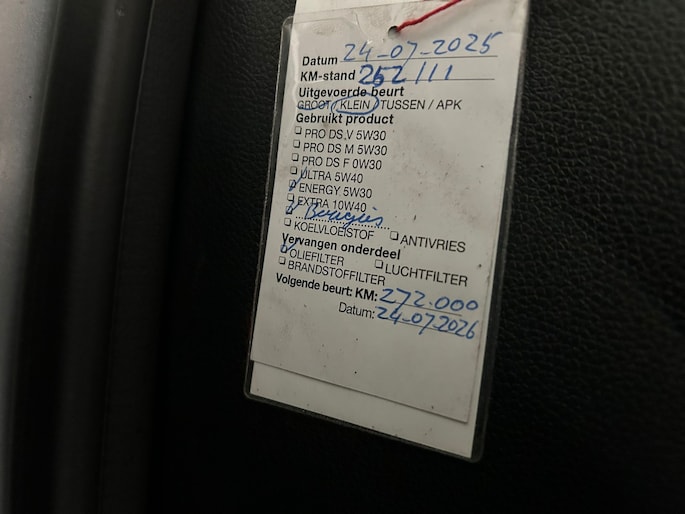 Datum 24-07-2025
KM-stand 252111
Uitgevoerde beurt
GROOT / KLEIN / TUSSEN / APK
Gebruikt product
PRO DS V 5W30
PRO DS M 5W30
PRO DS F 0W30
ULTRA 5W40
ENERGY 5W30
EXTRA 10W40
Bougies
KOELVLOEISTOF ANTIVRIES
Vervangen onderdeel
OLIEFILTER LUCHTFILTER
BRANDSTOFFILTER
Volgende beurt: KM: 272.000
Datum: 24-07-2026